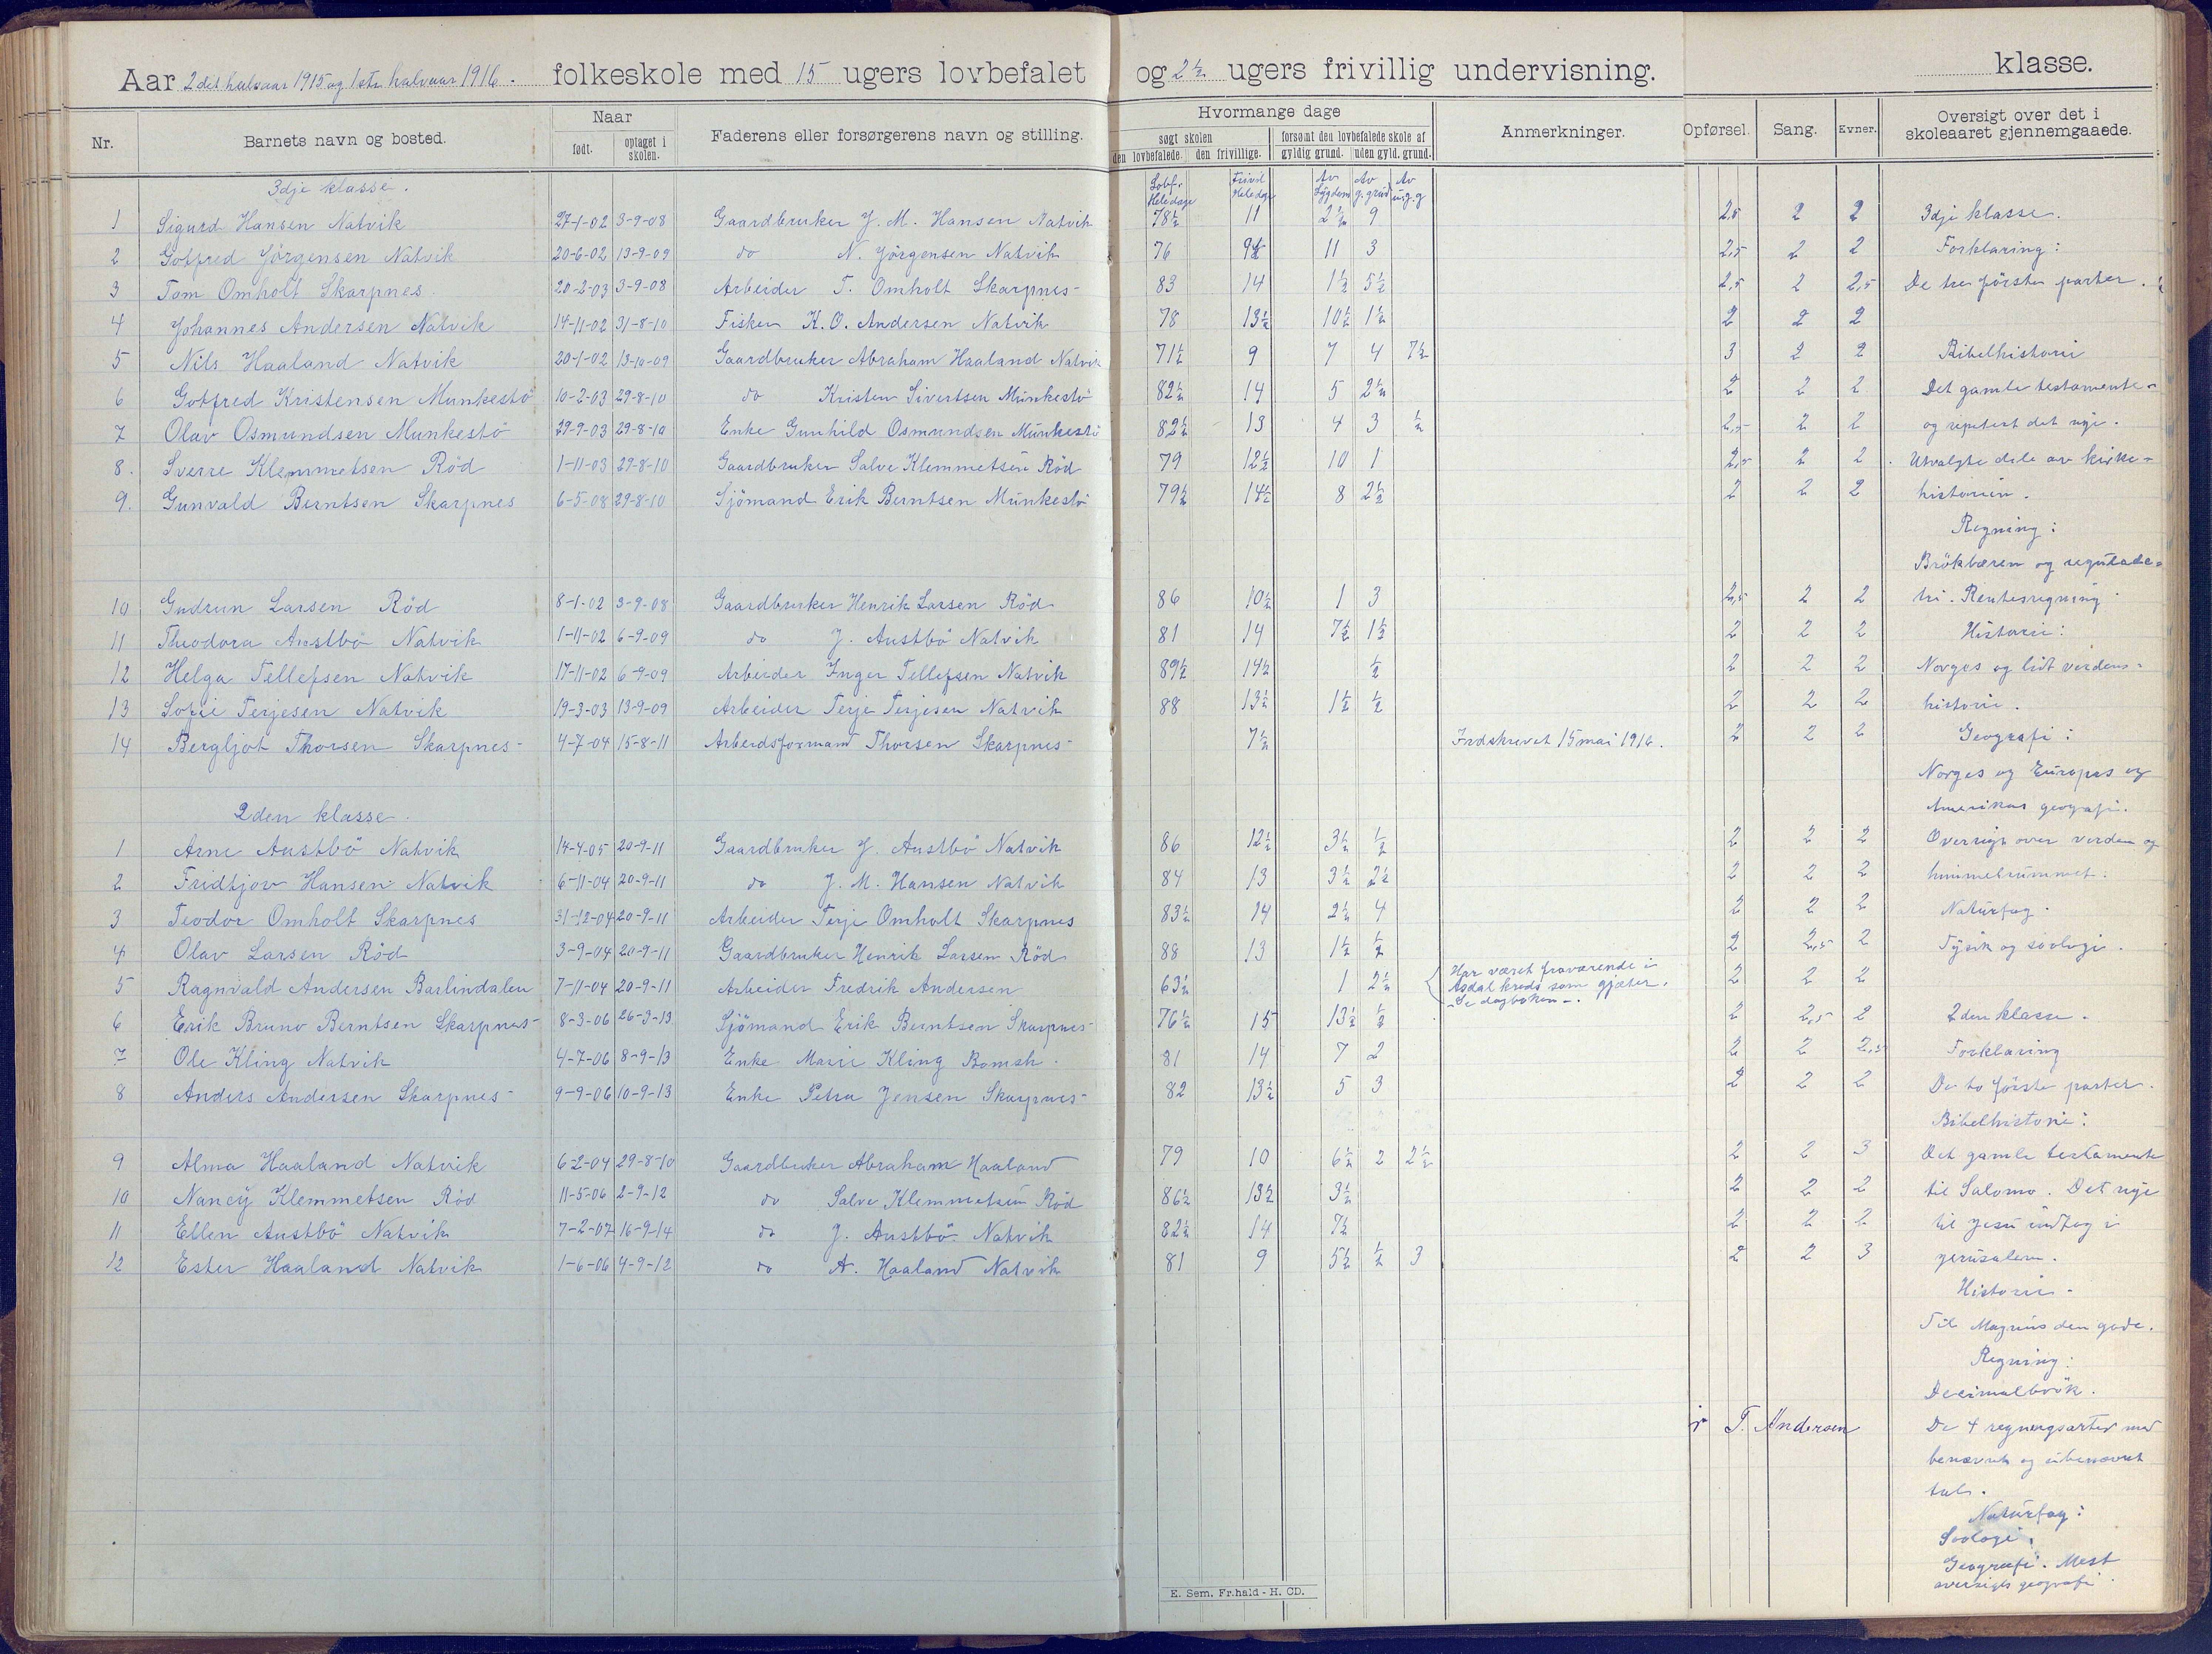 Aar 2det halvaar 1915 og 1ste halvaar 1916. folkeskole med 15 ugers lovbefalet og 2½ ugers frivillig undervisning. klasse.
Nr. Barnets navn og bosted. Naar født. optaget i skolen. Faderens eller forsørgerens navn og stilling. Hvormange dage søgt skolen den lovbefalede. den frivillige. forsømt den lovbefalede skole af gyldig grund. uden gyld. grund. Anmerkninger. Opførsel. Sang. Evner. Oversigt over det i skoleaaret gjennemgaaede.
3dje klasse. Lovbf. Hele dage Frivil Hele dage Av Sygdom Av g. grund Av u.g.g
1 Sigurd Hansen Natvik 27-1-02 3-9-08 Gaardbruker J. M. Hansen Natvik 78½ 11 2½ 9 2,5 2 2 3dje klasse.
2 Gotfred Jörgensen Natvik 20-6-02 13-9-09 do N. Jörgensen Natvik 76 9½ 11 3 2,5 2 2 Forklaring:
3 Tom Omholt Skarpnes 20-2-03 3-9-08 Arbeider T. Omholt Skarpnes 83 14 1½ 5½ 2,5 2 2,5 De tre förste parter.
4 Johannes Andersen Natvik 14-11-02 31-8-10 Fisker K. O. Andersen Natvik 78 13½ 10½ 1½ 2 2 2
5 Nils Haaland Natvik 20-1-02 13-10-09 Gaardbruker Abraham Haaland Natvik 71½ 9 7 4 7½ 3 2 2 Bibelhistorie
6 Gotfred Kristensen Munkestö 10-2-03 29-8-10 do Kristen Sivertsen Munkestö 82½ 14 5 2½ 2 2 2 Det gamle testamente
7 Olav Osmundsen Munkestö 29-9-03 29-8-10 Enke Gunhild Osmundsen Munkestö 82½ 13 4 3 ½ 2,5 2 2 og repetert det nye.
8. Sverre Klemmetsen Röd 1-11-03 29-8-10 Gaardbruker Salve Klemmetsen Röd 79 12½ 10 1 2,5 2 2 Utvalgte dele av kirke-
9. Gunvald Berntsen Skarpnes 6-5-08 29-8-10 Sjömand Erik Berntsen Munkestö 79½ 14½ 8 2½ 2 2 2 historien.
Regning:
Brökbæren og reguladе-
10 Gudrun Larsen Röd 8-1-02 3-9-08 Gaardbruker Henrik Larsen Röd 86 10½ 1 3 2,5 2 2 tri. Rentesregning
11 Theodora Austbö Natvik 1-11-02 6-9-09 do J. Austbö Natvik 81 14 7½ 1½ 2 2 2 Historie:
12 Helga Tellefsen Natvik 17-11-02 6-9-09 Arbeider Inger Tellefsen Natvik 89½ 14½ ½ 2 2 2 Norges og lidt verdens-
13 Sofie Terjesen Natvik 19-3-03 13-9-09 Arbeider Terje Terjesen Natvik 88 13½ 1½ ½ 2 2 2 historie.
14 Bergljot Thorsen Skarpnes 4-7-04 15-8-11 Arbeidsformand Thorsen Skarpnes 7½ Indskrevet 15 mai 1916. 2 2 2 Geografi:
Norges og Europas og
2den klasse. Amerikas geografi.
1 Arne Austbö Natvik 14-4-05 20-9-11 Gaardbruker J. Austbö Natvik 86 12½ 3½ ½ 2 2 2 Oversigt over verden og
2 Fridtjov Hansen Natvik 6-11-04 20-9-11 do J. M. Hansen Natvik 84 13 3½ 2½ 2 2 2 himmelrummet.
3 Teodor Omholt Skarpnes 31-12-04 20-9-11 Arbeider Terje Omholt Skarpnes 83½ 14 2½ 4 2 2 2 Naturfag.
4 Olav Larsen Röd 3-9-04 20-9-11 Gaardbruker Henrik Larsen Röd 88 13 1½ ½ 2 2,5 2 Fysik og soologi.
5 Ragnvald Andersen Barlindalen 7-11-04 20-9-11 Arbeider Fredrik Andersen 63½ 1 2½ Har været fraværende i Asdal kreds som gjæter. Se dagboken. 2 2 2
6 Erik Bruno Berntsen Skarpnes 8-3-06 26-3-13 Sjömand Erik Berntsen Skarpnes 76½ 15 13½ ½ 2 2,5 2 2den klasse.
7 Ole Kling Natvik 4-7-06 8-9-13 Enke Marie Kling 81 14 7 2 2 2 2,5 Forklaring
8 Anders Andersen Skarpnes 9-9-06 10-9-13 Enke Petra Jensen Skarpnes 82 13½ 5 3 2 2 2 De to förste parter.
Bibelhistorie:
9 Alma Haaland Natvik 6-2-04 29-8-10 Gaardbruker Abraham Haaland 79 10 6½ 2 2½ 2 2 3 Det gamle testamente
10 Nancy Klemmetsen Röd 11-5-06 2-9-12 do Salve Klemmetsen Röd 86½ 13½ 3½ 2 2 2 til Salomo. Det nye
11 Ellen Austbö Natvik 7-2-07 16-9-14 do J. Austbö Natvik 82½ 14 7½ 2 2 2 til Jesu indtog i
12 Ester Haaland Natvik 1-6-06 4-9-12 do A. Haaland Natvik 81 9 5½ ½ 3 2 2 3 Jerusalem.
Historie
Til Magnus den gode.
Regning:
Decimalbrök.
T. Andersen De 4 regningsarter med
benævnt og ubenævnt
tal.
Naturfag:
Soologi.
Geografi. Mest
oversigts geografi
E. Sem. Fr.hald - H. CD.